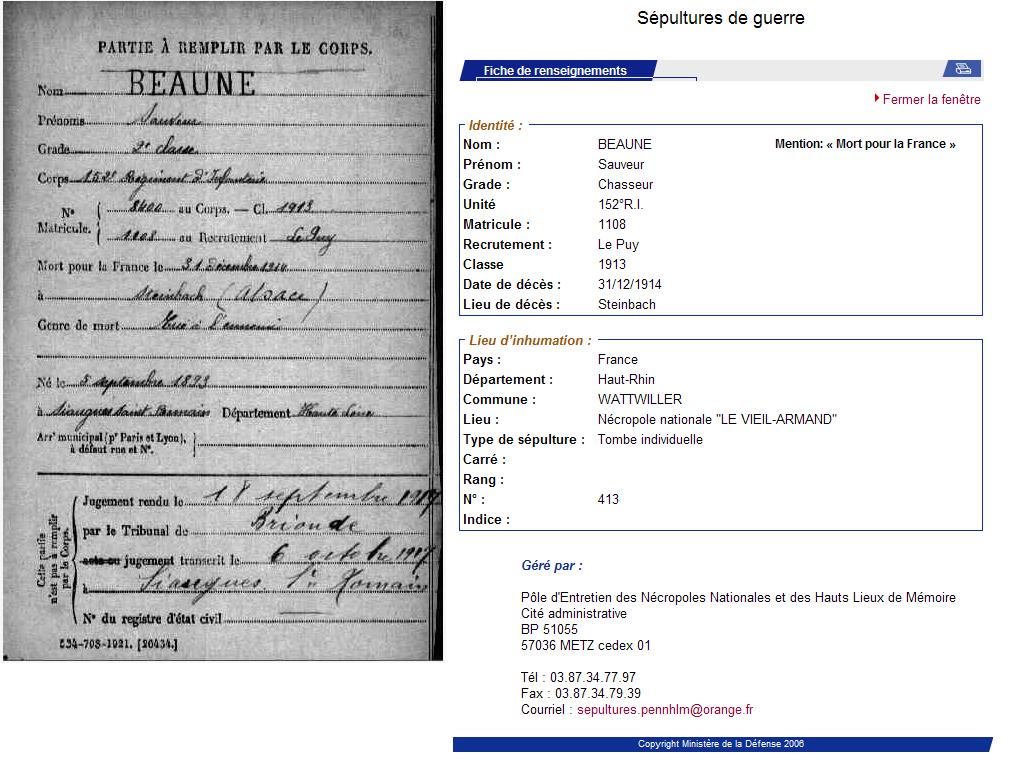 PARTIE À REMPLIR PAR LE CORPS.
Nom BEAUNE
Prénoms Sauveur
Grade 2e classe
Corps 152e Régiment d'Infanterie
N° Matricule.
8400 au Corps. — Cl. 1913
1108 au Recrutement Le Puy
Mort pour la France le 31 Décembre 1914
à Steinbach (Alsace)
Genre de mort Tué à l'ennemi
Né le 5 septembre 1893
à Siaugues Saint Romain Département Haute Loire
Arrt municipal (pr Paris et Lyon),
à défaut rue et N°.
Cette partie
n'est pas à remplir
par le Corps.
Jugement rendu le 18 septembre 1917
par le Tribunal de Brioude
acte ou jugement transcrit le 6 octobre 1917
à Siaugues St Romain
N° du registre d'état civil
534-708-1921. [26434.]
Sépultures de guerre
Fiche de renseignements
Fermer la fenêtre
Identité :
Nom : BEAUNE Mention: « Mort pour la France »
Prénom : Sauveur
Grade : Chasseur
Unité 152°R.I.
Matricule : 1108
Recrutement : Le Puy
Classe 1913
Date de décès : 31/12/1914
Lieu de décès : Steinbach
Lieu d'inhumation :
Pays : France
Département : Haut-Rhin
Commune : WATTWILLER
Lieu : Nécropole nationale "LE VIEIL-ARMAND"
Type de sépulture : Tombe individuelle
Carré :
Rang :
N° : 413
Indice :
Géré par :
Pôle d'Entretien des Nécropoles Nationales et des Hauts Lieux de Mémoire
Cité administrative
BP 51055
57036 METZ cedex 01
Tél : 03.87.34.77.97
Fax : 03.87.34.79.39
Courriel : sepultures.pennhlm@orange.fr
Copyright Ministère de la Défense 2006